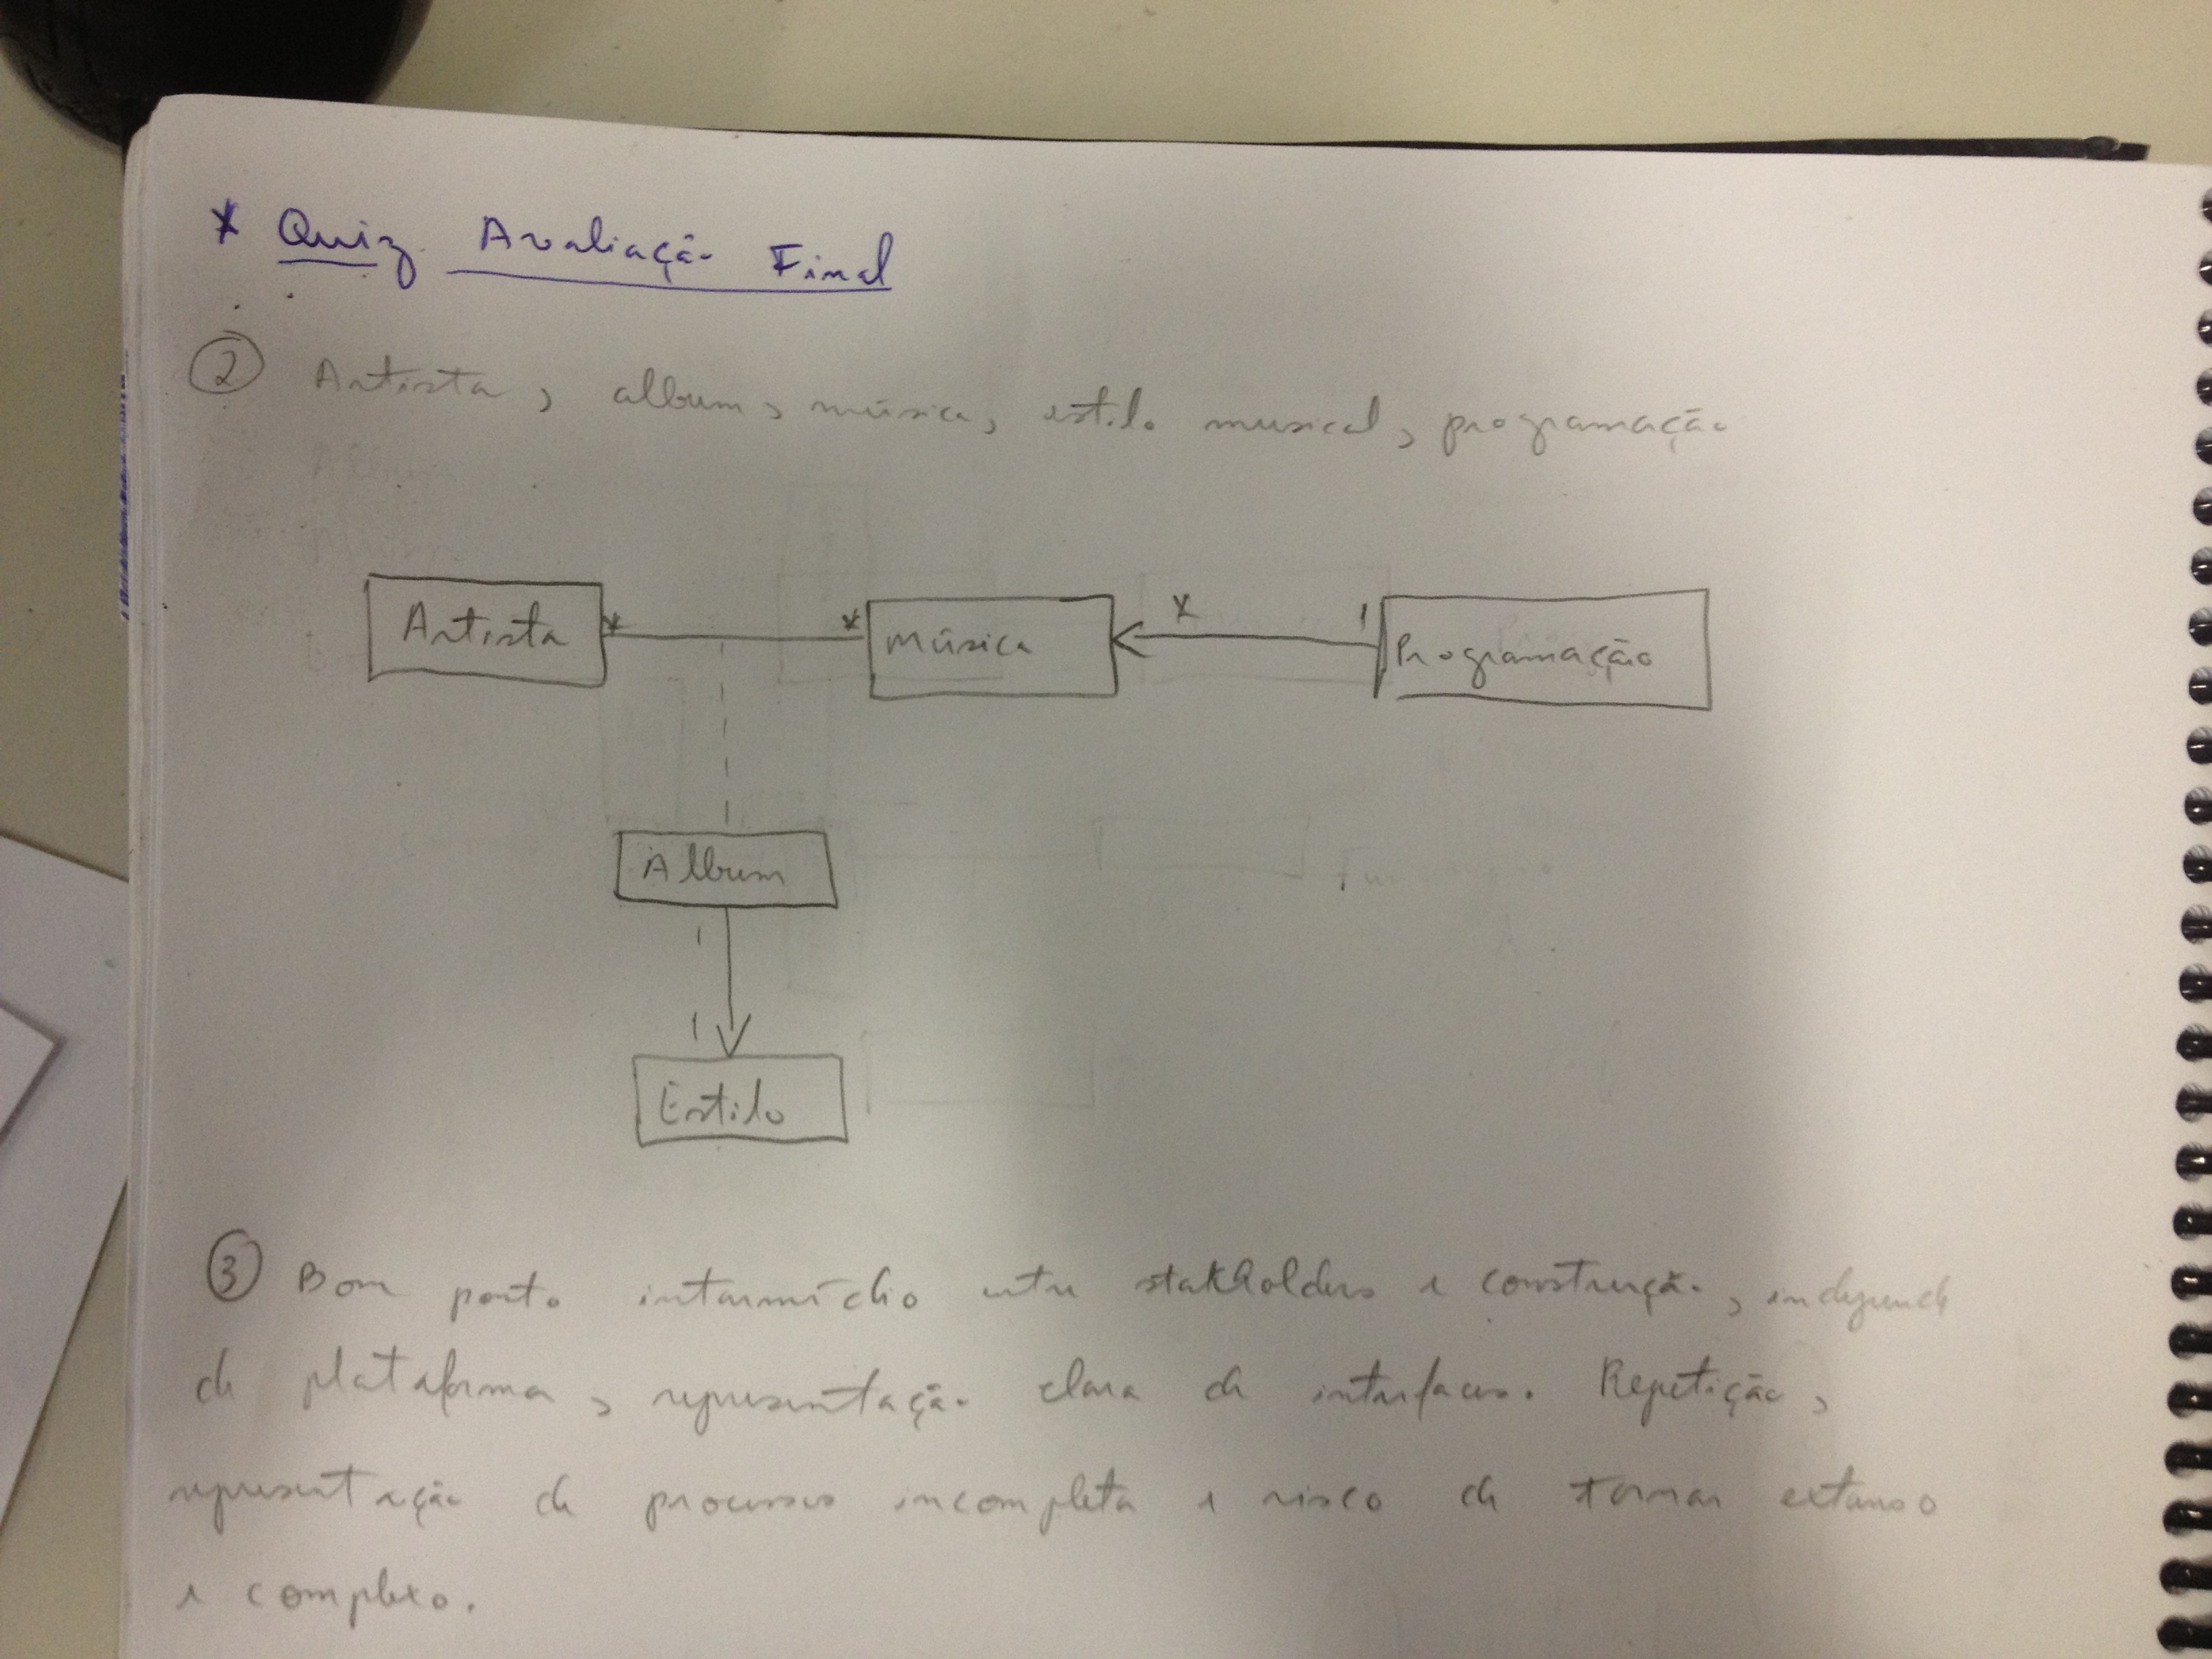 * Quiz Avaliação Final
② Artista, album, música, estilo musical, programação
Artista * * Música * 1 Programação
Album
1
1
Estilo
③ Bom ponto intermédio entre stakholders e construção, independ
de plataforma, representação clara de interfaces. Repetição,
representação de processos incompleta e risco de tornar extenso
e complexo.